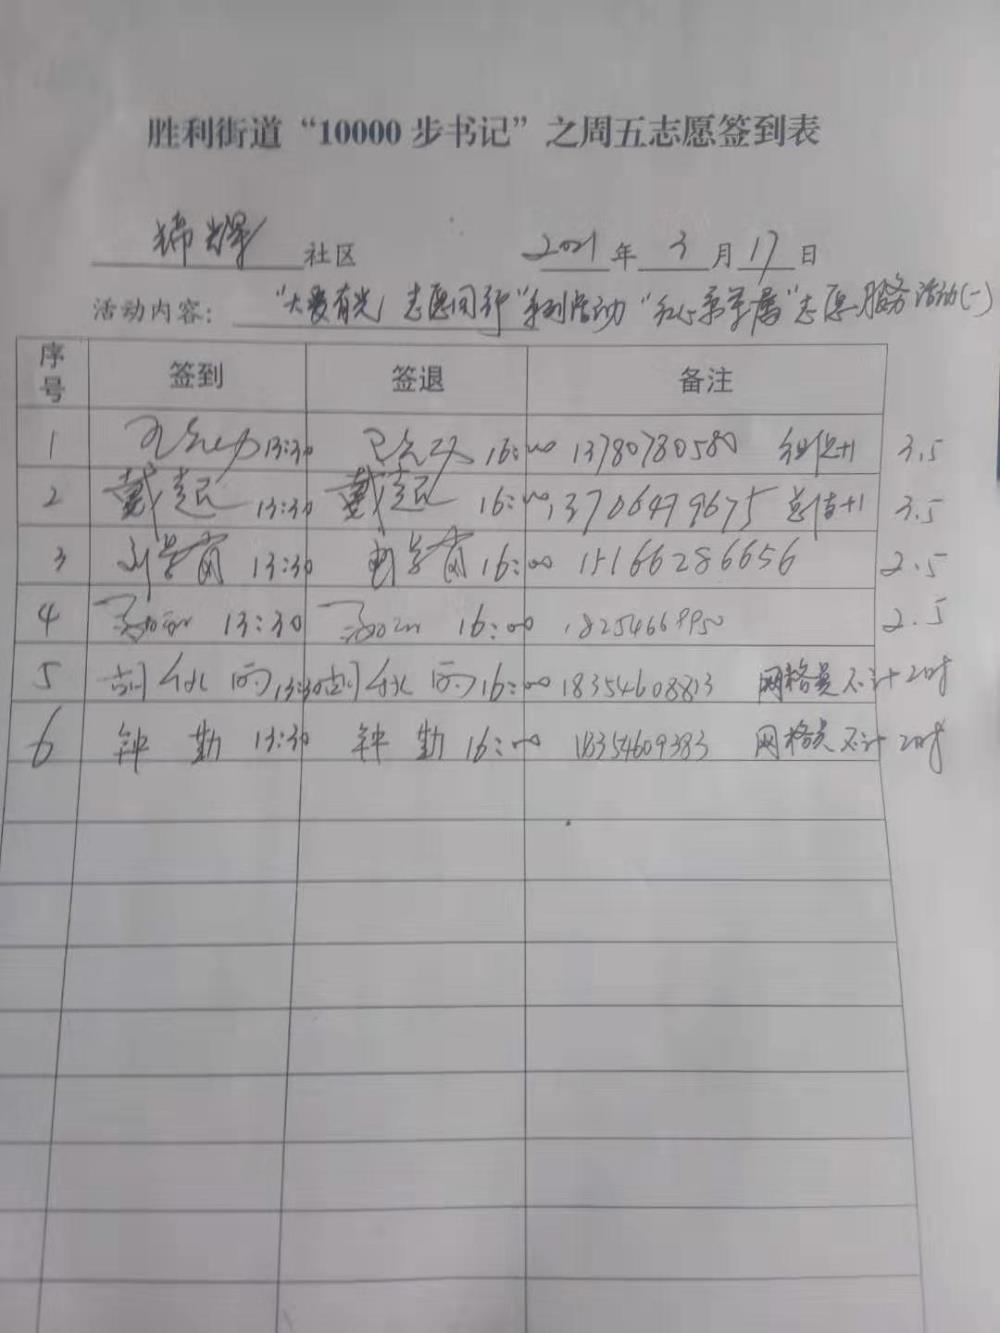 胜利街道“10000 步书记”之周五志愿签到表
锦辉 社区 2021 年 3 月 17 日
活动内容： “大爱有光 志愿同行”系列活动 “ ”志愿服务活动(一)
序号 签到 签退 备注
1 13:30 16:00 13780780580 组织+1 3.5
2 戴起 13:30 戴起 16:00 13706479675 总结+1 3.5
3 13:30 16:00 15166286656 2.5
4 13:30 16:00 18254668950 2.5
5 13:30 16:00 18354608813 网格员不计时
6 钟勤 13:30 钟勤 16:00 18354609383 网格员不计时